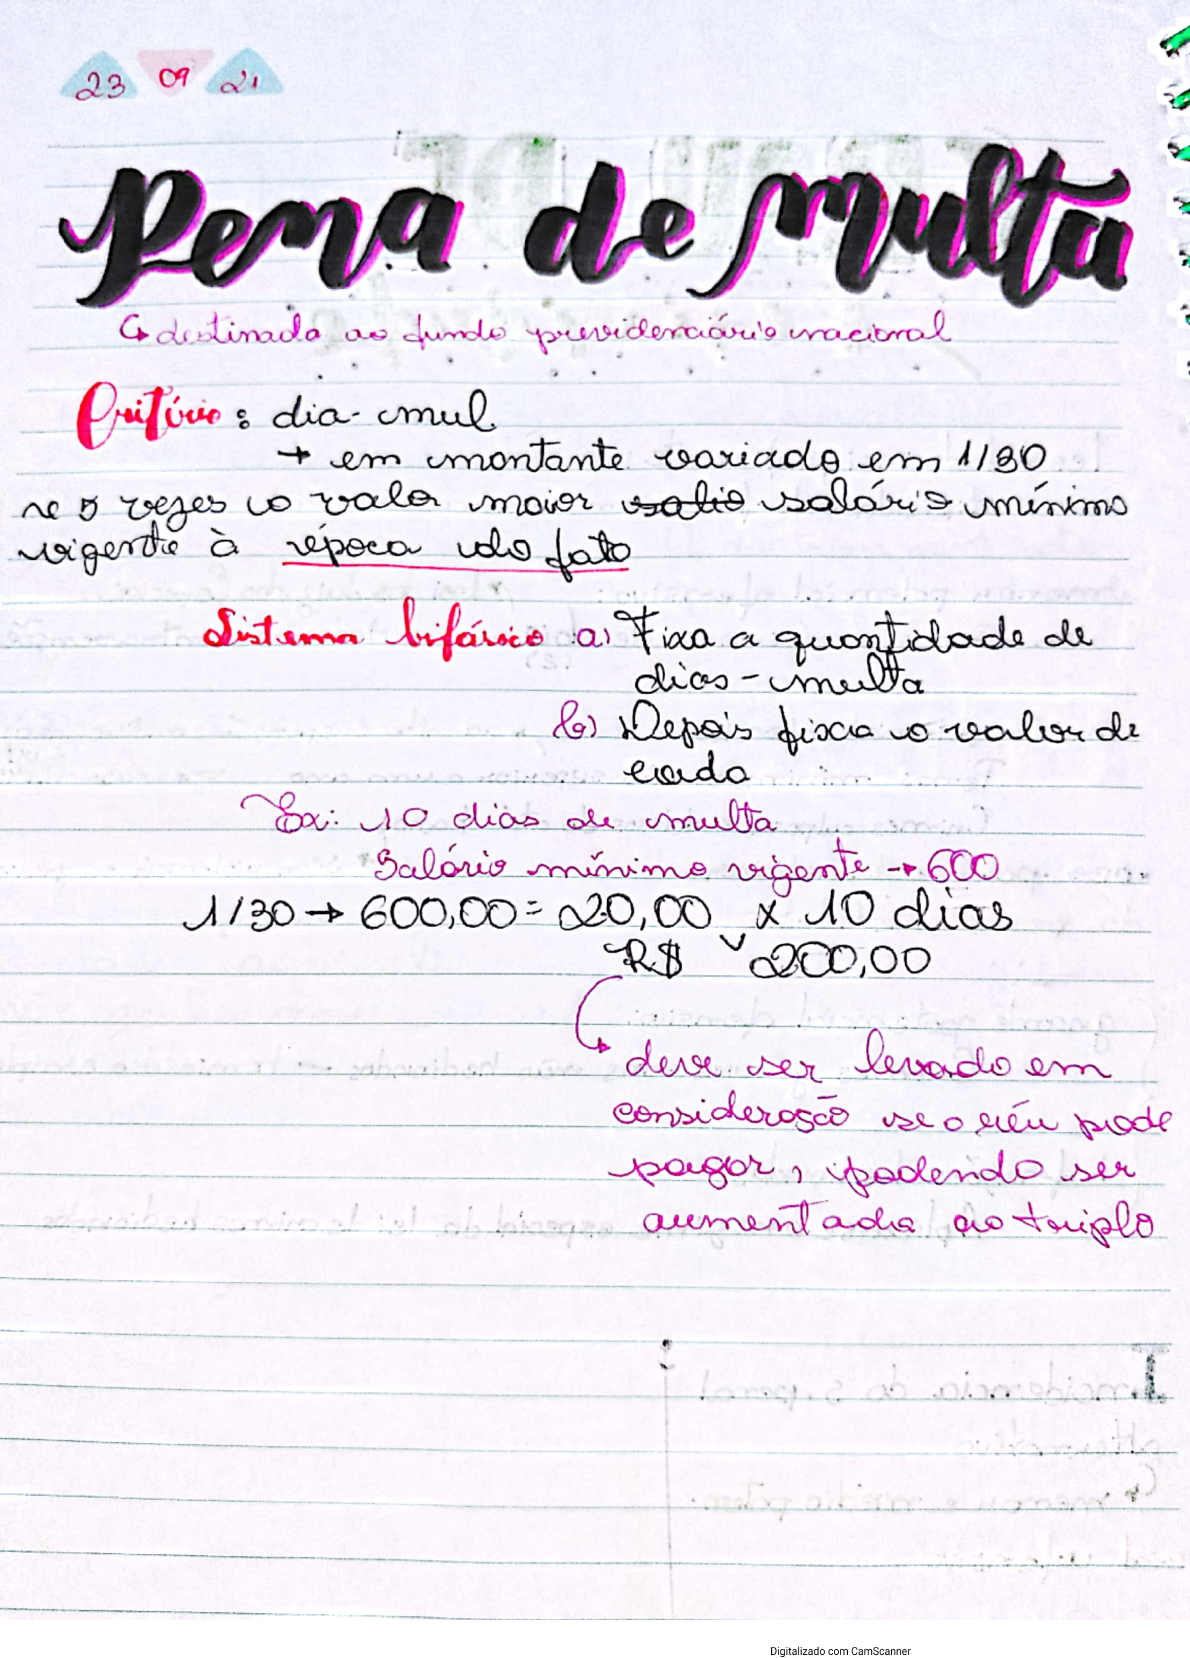 23 09 21
Pena de multa
↳ destinada ao fundo previdenciário nacional
Critério: dia-mul
→ em montante variado em 1/30
e 5 vezes o valor maior salário mínimo
vigente à época do fato
Sistema bifásico a) Fixa a quantidade de
dias-multa
b) Depois fixa o valor de
cada
Ex: 10 dias de multa
Salário mínimo vigente → 600
1/30 → 600,00 = 20,00 x 10 dias
R$ 200,00
↳ deve ser levado em
consideração se o réu pode
pagar, podendo ser
aumentada ao triplo
Digitalizado com CamScanner